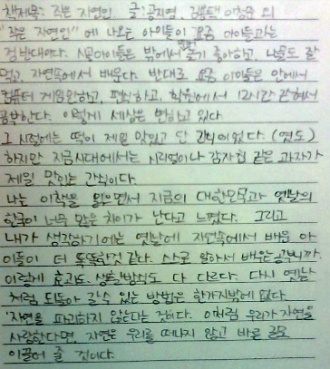 책제목: 작은 자연인 글: 공지영, 김용택 이창수 외
"작은 자연인"에 나오는 아이들이 요즘 아이들과는
정반대이다. 시골아이들은 밖에서 놀기 좋아하고, 나물도 잘
먹고, 자연속에서 배운다. 반대로 요즘 아이들은 안에서
컴퓨터 게임만하고, 편식하고, 학원에서 12시간 공부
공부한다. 이렇게 세상은 변하고 있다
그 시절에는 떡이 제일 맛있고 단 간식이었다.
하지만 지금시대에서는 시리얼이나 감자칩 같은 과자가
제일 맛있는 간식이다.
나는 이책을 읽으면서 지금의 대한민국과 옛날의
한국이 너무 많은 차이가 난다고 느꼈다. 그리고
내가 생각하기에는 옛날에 자연속에서 배운 아
이들이 더 똑똑한것 같다. 스스로 알아서 배우는 거니까.
이렇게 효과도, 생활방식도 다 다르다. 다시 옛날
처럼 되돌아 갈수 있는 방법은 한가지밖에 없다
'자연을 파괴하지 않는다는 것이다. 이처럼 우리가 자연을
사랑한다면, 자연은 우리를 떠나지 않고 바른 길로
이끌어 줄 것이다.